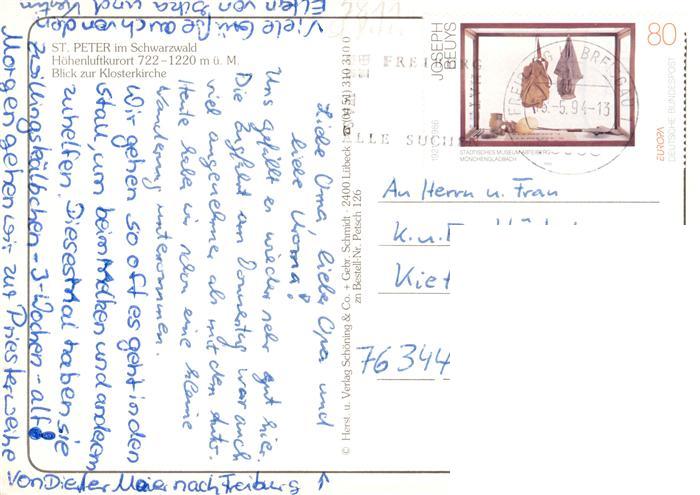 ST. PETER im Schwarzwald
Höhenluftkurort 722–1220 m ü. M.
Blick zur Klosterkirche
Liebe Oma, lieber Opa und
liebe Uroma!
Uns gefällt es wieder sehr gut hier.
Die Zugfahrt am Donnerstag war auch
viel angenehmer als mit dem Auto.
Heute haben wir schon eine kleine
Wanderung unternommen.
Wir gehen so oft es geht in den
Stall, um beim Melken und anderem
zu helfen. Dieses mal haben sie
zwillingskälbchen - 3 - Wochen - alt!
Morgen gehen wir zur Priesterweihe
von Dieter Maier nach Freiburg
Viele Grüße auch von den
Eltern von
und Kerstin
© Herst. u. Verlag Schöning & Co. + Gebr. Schmidt · 2400 Lübeck · ☎ (04 51) 310 310 0
zu Bestell-Nr. Petsch 126
JOSEPH
BEUYS
80
STÄDTISCHES MUSEUM ABTEIBERG
MÖNCHENGLADBACH
EUROPA
DEUTSCHE BUNDESPOST
FREIBURG
BREISGAU
-5.94-13
An Herrn u. Frau
K. u.
Kiet
76344